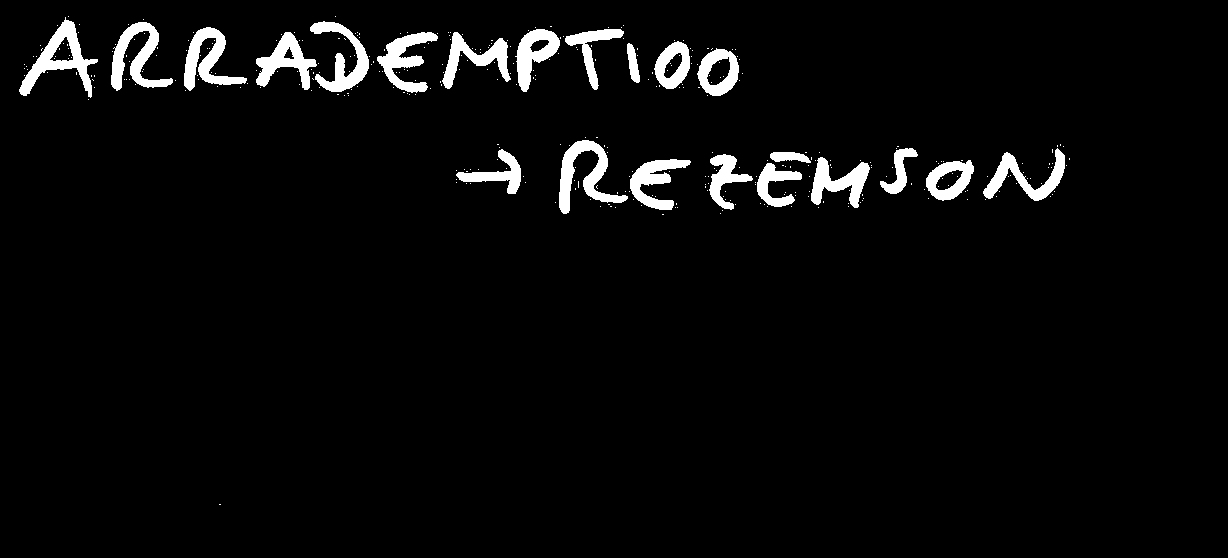 ARRADEMPTIOO
→ REZEMSON